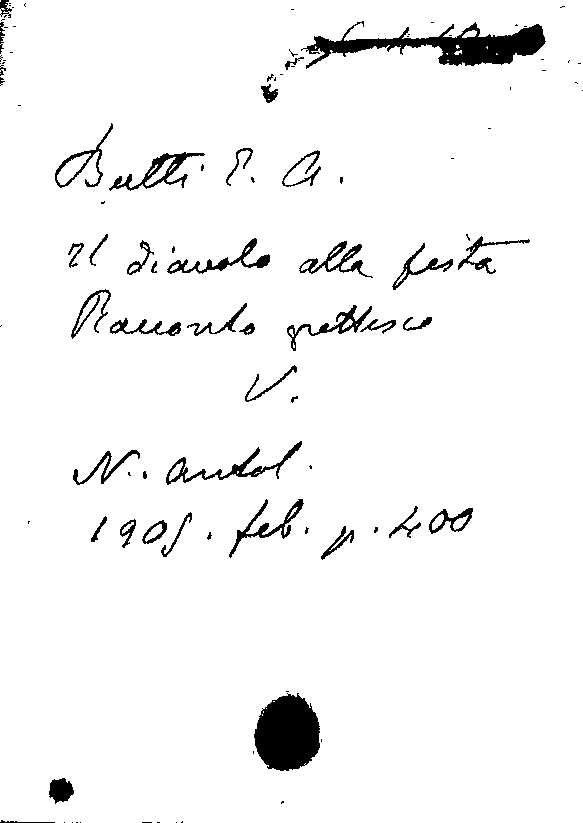 Butti E. A.
Il diavolo alla festa
Racconto grottesco
V.
N. antol.
1905. feb. p. 400